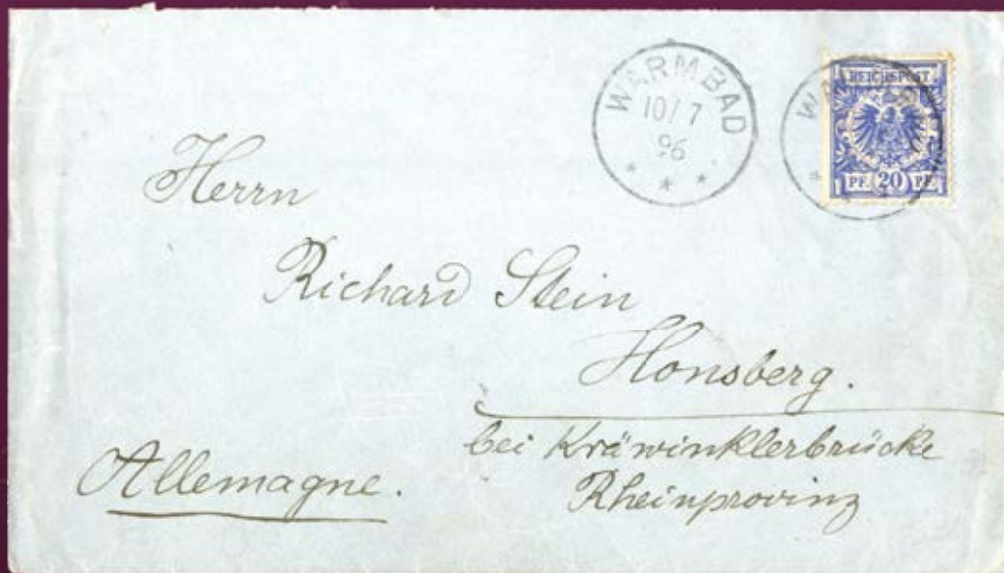 WARMBAD
10/7
96
REICHSPOST
PF. 20 PF.
Herrn
Richard Stein
Honsberg.
bei Kräwinklerbrücke
Rheinprovinz
Allemagne.